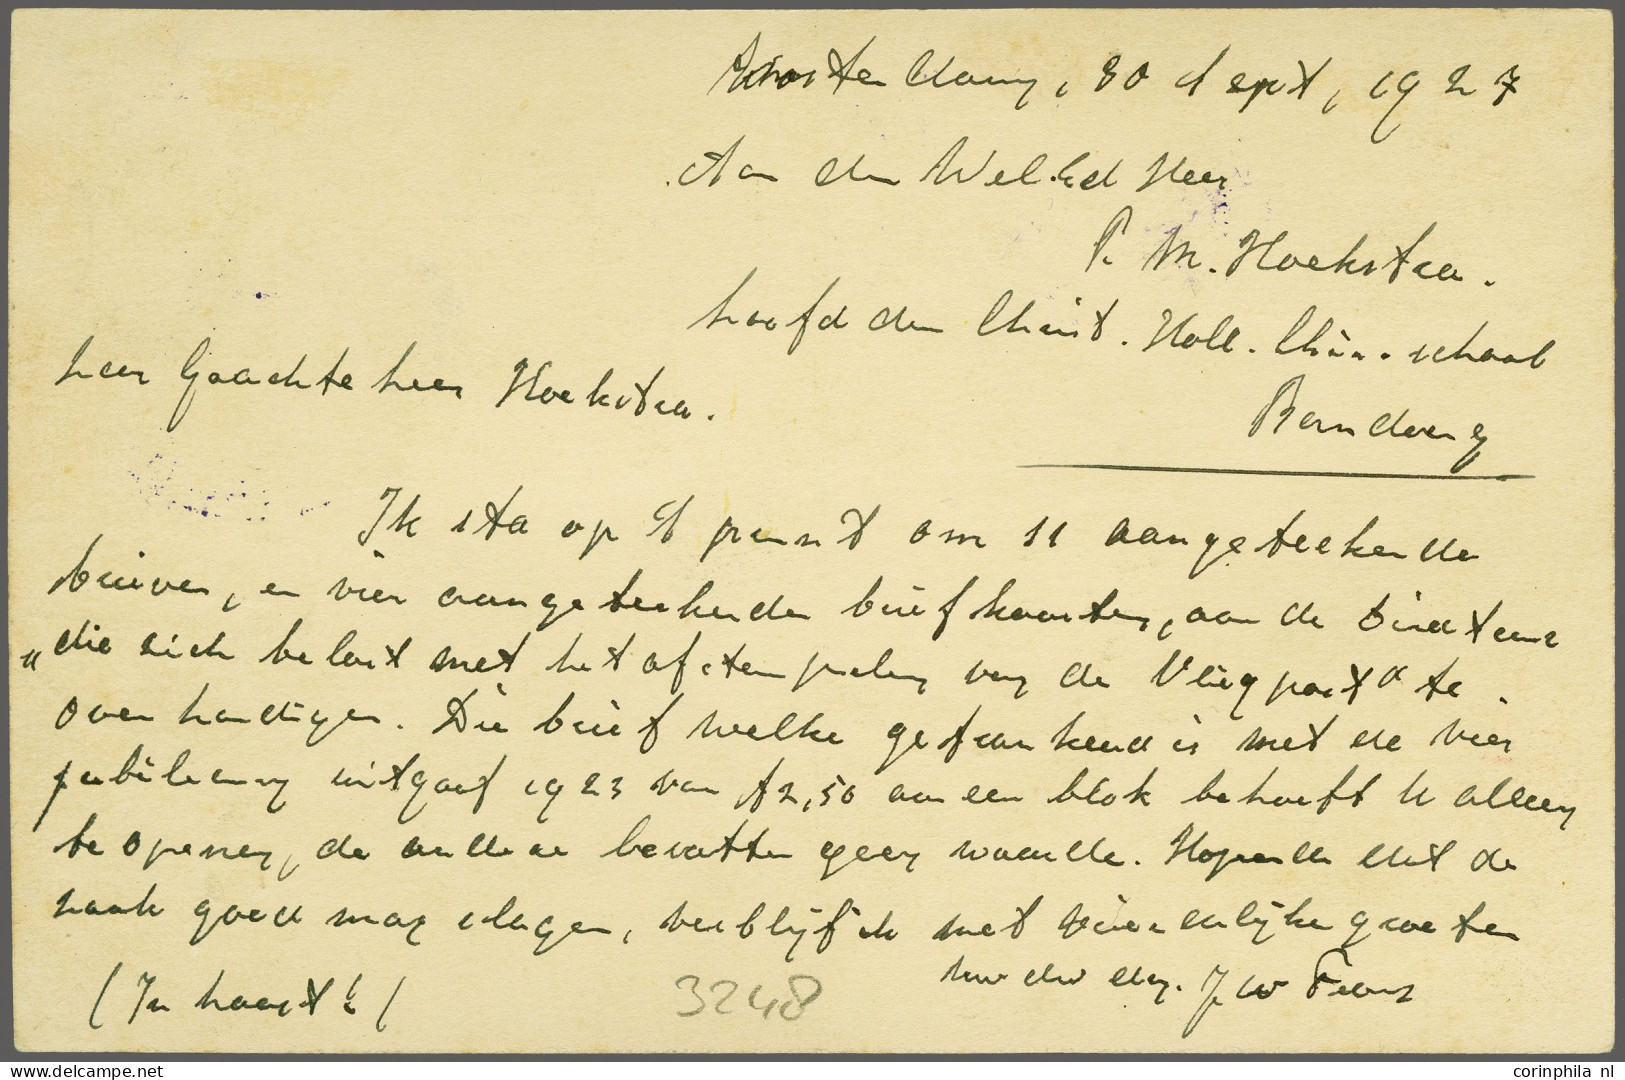 30 Sept, 1927
Aan den Wel.Ed Heer
P. M. Hoekstra.
hoofd der Christ. Holl. Chin. school
Bandoeng
Zeer Geachte heer Hoekstra.
Ik sta op 't punt om 11 aangeteekende
brieven, en vier aangeteekende briefkaarten, aan de
"die zich belast met het afstempelen van de Vliegpost" te
overhandigen. Die brief welke gefrankeerd is met de vier
jubileum uitgaaf 1923 van f 2,50 aan een blok behoeft U alleen
te openen, de andere bevatten geen waarde. Hopende dat de
zaak goed mag slagen, verblijf ik met vriendelijke groeten
Uw dw dr. J W
(In haast!)
3248
corinphila nl